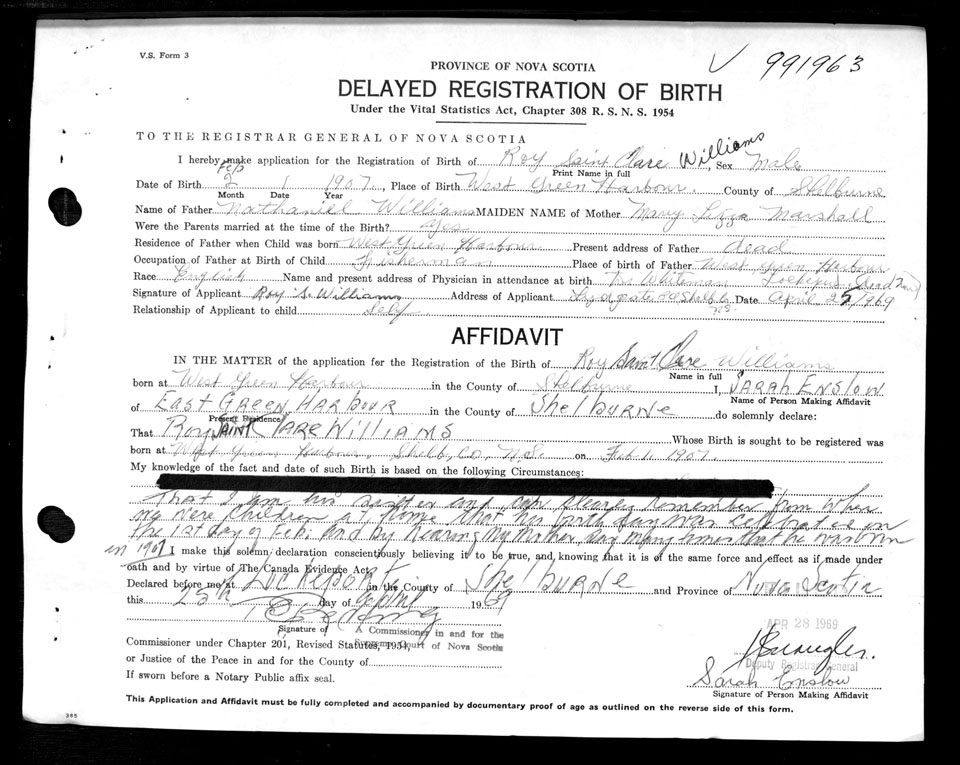 V.S. Form 3
PROVINCE OF NOVA SCOTIA
V 991963
DELAYED REGISTRATION OF BIRTH
Under the Vital Statistics Act, Chapter 308 R. S. N. S. 1954
TO THE REGISTRAR GENERAL OF NOVA SCOTIA
I hereby make application for the Registration of Birth of Roy Saint Clare Williams, Sex Male
Print Name in full
Feb
Date of Birth 2 1 1907, Place of Birth West Green Harbour. County of Shelburne
Month Date Year
Name of Father Nathaniel Williams MAIDEN NAME of Mother Mary Lizza Marshall
Were the Parents married at the time of the Birth? Yes
Residence of Father when Child was born West Green Harbour Present address of Father dead
Occupation of Father at Birth of Child Fisherman Place of birth of Father West Green Harbour
Race English Name and present address of Physician in attendance at birth Whitman Lockeport dead now
Signature of Applicant Roy S. Williams Address of Applicant Date April 25/1969
Relationship of Applicant to child self
AFFIDAVIT
IN THE MATTER of the application for the Registration of the Birth of Roy Saint Clare Williams
Name in full
born at West Green Harbour in the County of Shelburne I, SARAH ENSLOW
Name of Person Making Affidavit
of EAST GREEN HARBOUR in the County of Shelburne do solemnly declare:
Present Residence
That Roy SAINT CLARE WILLIAMS Whose Birth is sought to be registered was
born at West Green Harbour, Shelb, Co, N.S. on Feb 1, 1907.
My knowledge of the fact and date of such Birth is based on the following Circumstances:
That I am his sister and can clearly remember from when
we were children at home that his birth day was celebrated on
the 1st day of Feb. and by hearing my Mother say many times that he was born
in 1907 I make this solemn declaration conscientiously believing it to be true, and knowing that it is of the same force and effect as if made under
oath and by virtue of The Canada Evidence Act.
Declared before me at Lockeport in the County of Shelburne and Province of Nova Scotia
this 25th day of April 1969
APR 28 1969
Signature of A Commissioner in and for the
Supreme Court of Nova Scotia
Commissioner under Chapter 201, Revised Statutes, 1954,
or Justice of the Peace in and for the County of
Deputy Registrar General
If sworn before a Notary Public affix seal.
Sarah Enslow
Signature of Person Making Affidavit
This Application and Affidavit must be fully completed and accompanied by documentary proof of age as outlined on the reverse side of this form.
385